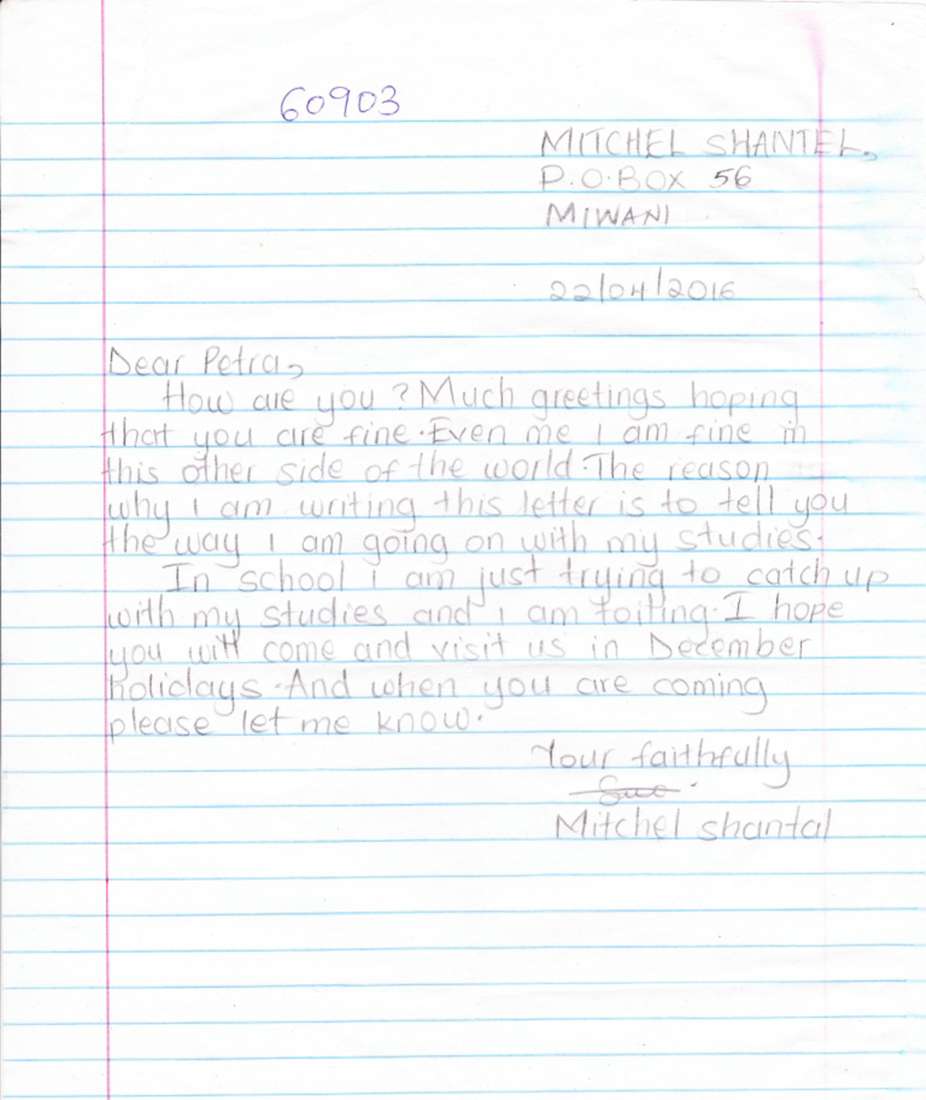 60903
MITCHEL SHANTEL,
P.O.BOX 56
MIWANI
22/04/2016
Dear Petra,
How are you? Much greetings hoping
that you are fine. Even me I am fine in
this other side of the world. The reason
why I am writing this letter is to tell you
the way I am going on with my studies.
In school I am just trying to catch up
with my studies and I am toiling. I hope
you will come and visit us in December
holidays. And when you are coming
please let me know.
Your faithfully
Mitchel shantal